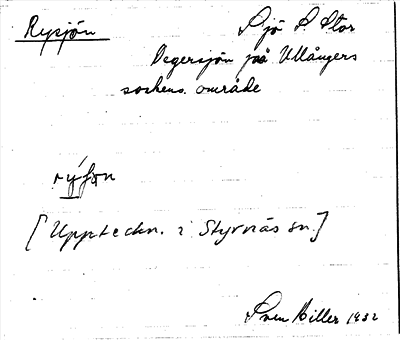 Rysjön
Sjö S. Stor
Degersjön på Ullångers
sockens område
rýſɔn
[Uppteckn. i Styrnäs sn.]
Sven Hiller 1932